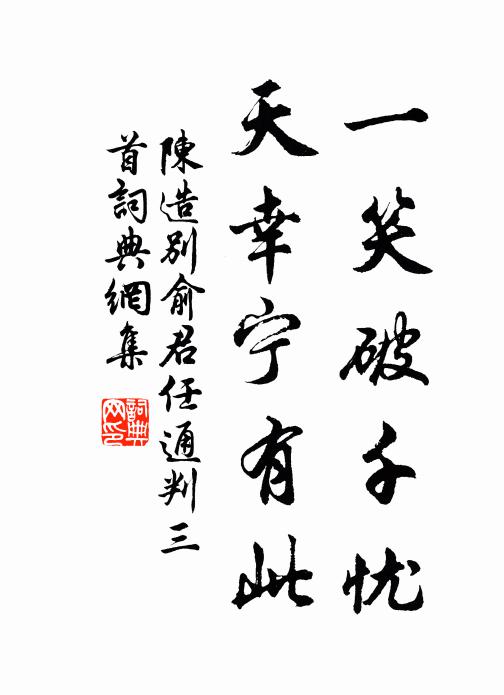 一笑破千忧
天幸宁有此
陳造別俞君任通判三
首詞典網集
詞典
网印